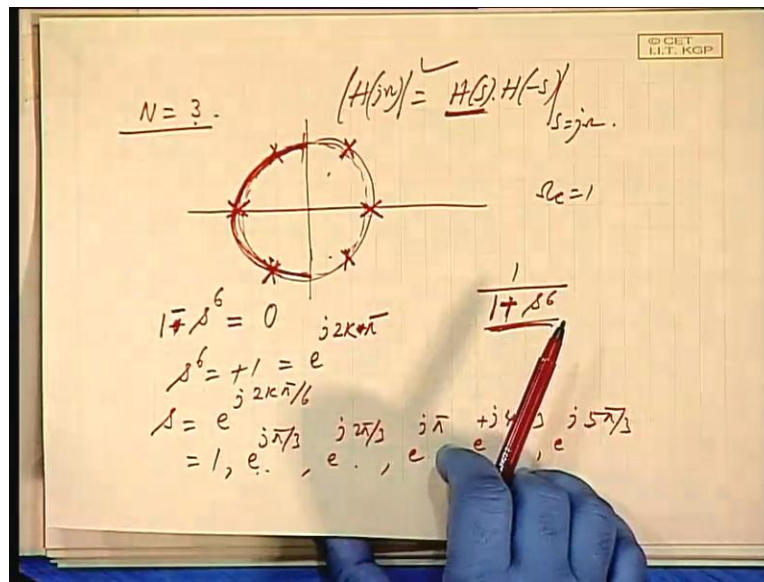 © CET
I.I.T. KGP
N = 3.
|H(jΩ)| = H(s).H(-s)|s=jΩ.
Ωc = 1
1
1 + s^6
1 - s^6 = 0
s^6 = +1 = e^{j2Kπ}
s = e^{j2Kπ/6}
= 1, e^{jπ/3}, e^{j2π/3}, e^{jπ}, e^{+j4 3}, e^{j5π/3}